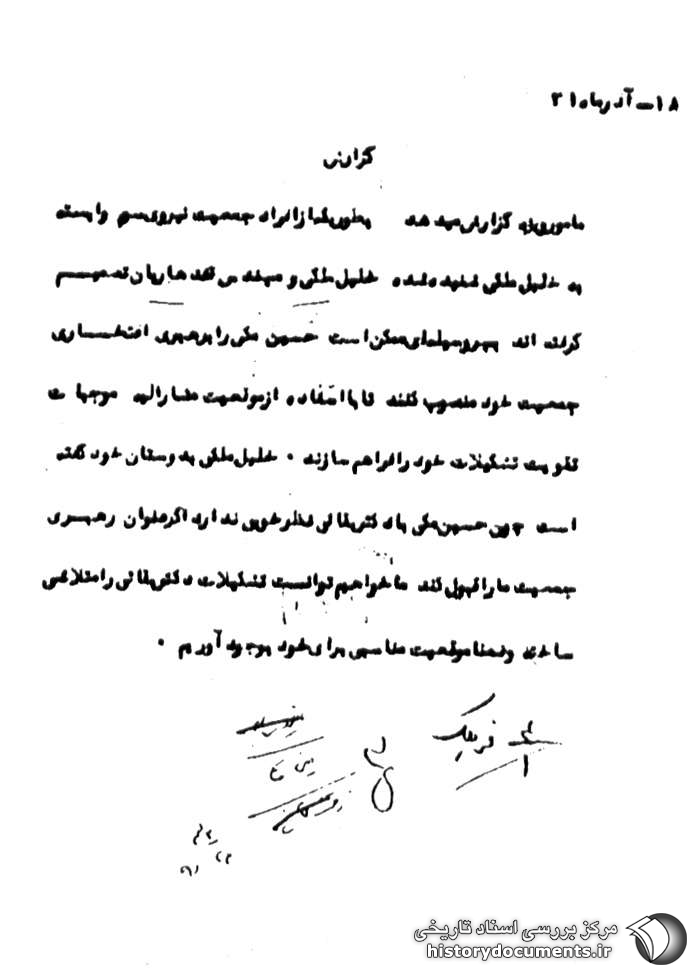 ۱۸-آذرماه ۳۱
گزارش
مامورویژه گزارش میدهد بطوریکه از افراد جمعیت نیروی سوم وابسته
به خلیل ملکی شنیده شده خلیل ملکی و هیئت تصمیم
گرفته اند بهر وسیله ای ممکن است حسین مکی را برهبری افتخاری
جمعیت خود منصوب کنند تا با استفاده از موقعیت مشارالیه موجبات
تقویت تشکیلات خود را فراهم سازند . خلیل ملکی بدوستان خود گفته
است چون حسین مکی با دکتربقائی نظر خوبی ندارد اگر عنوان رهبری
جمعیت ما را قبول کند ما خواهیم توانست تشکیلات دکتربقائی را متلاشی
ساخته وضمنا موقعیت مناسبی برای خود بوجود آوریم .
مرکز بررسی اسناد تاریخی
historydocuments.ir